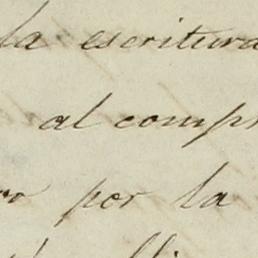 la escritura
al comp
por la